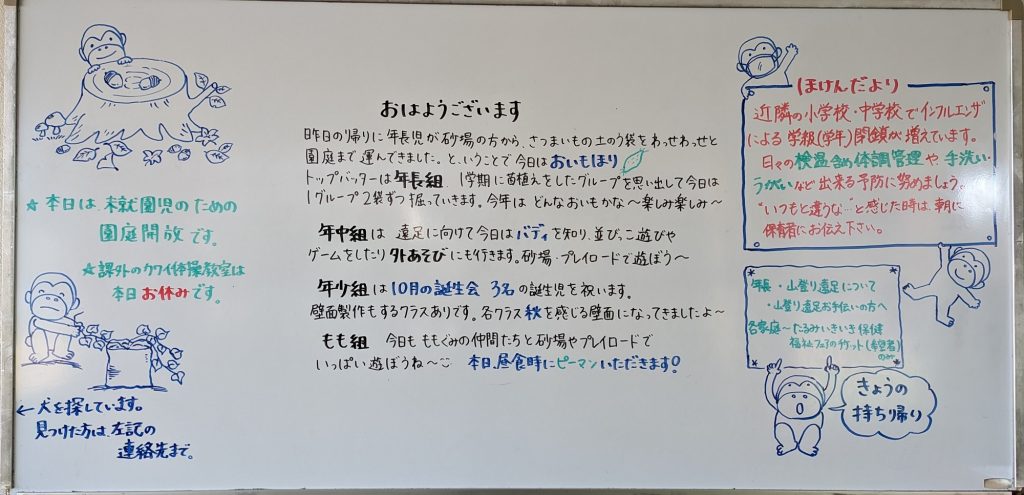 ☆本日は、未就園児のための
園庭開放です。
☆課外のカワイ体操教室は
本日お休みです。
←犬を探しています。
見つけた方は、左記の
連絡先まで。
おはようございます
昨日の帰りに年長児が砂場の方から、さつまいもの土のう袋をわっせわっせと
園庭まで運んできました。ということで今日はおいもほり
トップバッターは年長組 1学期に苗植えをしたグループを思い出して今日は
1グループ2袋ずつ掘っていきます。今年はどんなおいもかな~楽しみ楽しみ~
年中組は 遠足に向けて今日はバディを知り、並びっこ遊びや
ゲームをしたり外あそびにも行きます。砂場・プレイロードで遊ぼう~
年少組は10月の誕生会 3名の誕生児を祝います。
壁面製作もするクラスありです。各クラス秋を感じる壁面になってきましたよ~
もも組 今日ももぐみの仲間たちと砂場やプレイロードで
いっぱい遊ぼうね~ 本日、昼食時にピーマンいただきます!
ほけんだより
近隣の小学校・中学校でインフルエンザ
による学級(学年)閉鎖が増えています。
日々の検温含め体調管理や手洗い・
うがいなど出来る予防に努めましょう。
"いつもと違うな…"と感じた時は、朝に
保育者にお伝え下さい。
年長・山登り遠足について
・山登り遠足お手伝いの方へ
各家庭~たるみいきいき保健
福祉フェアのチケット(希望者)
のみ
きょうの
持ち帰り